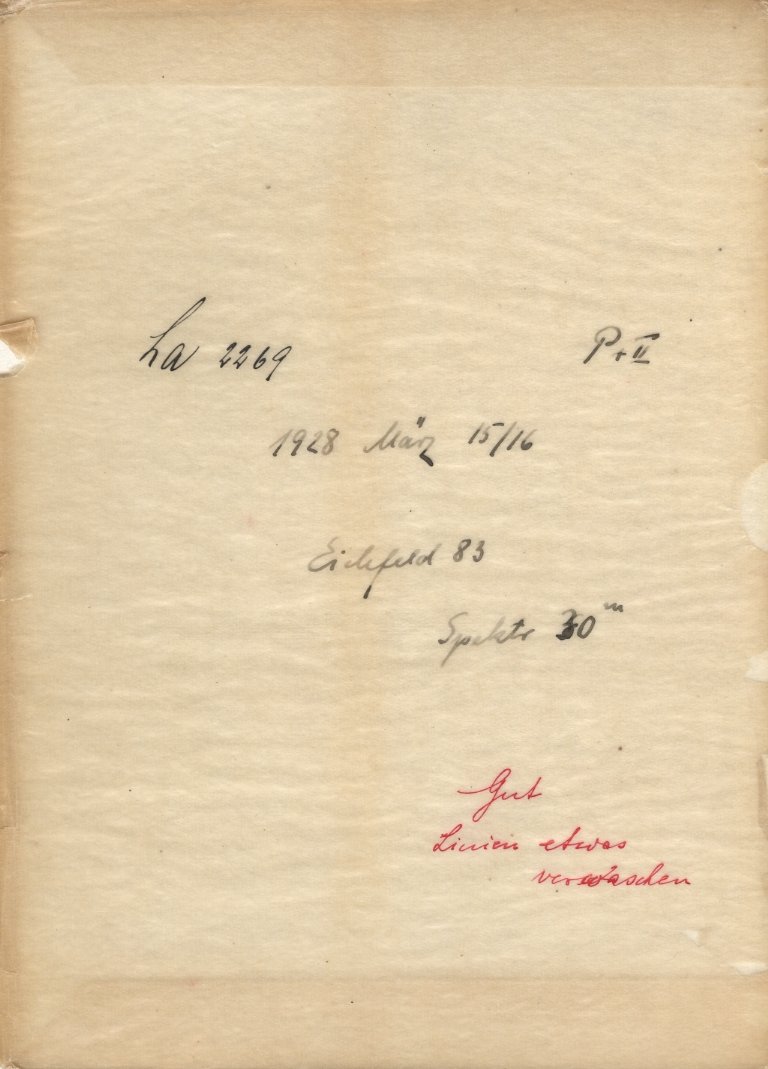 La 2269 P+II
1928 März 15/16
Eichfeld 83
Spektr 30ᵐ
Gut
Linien etwas
verwaschen